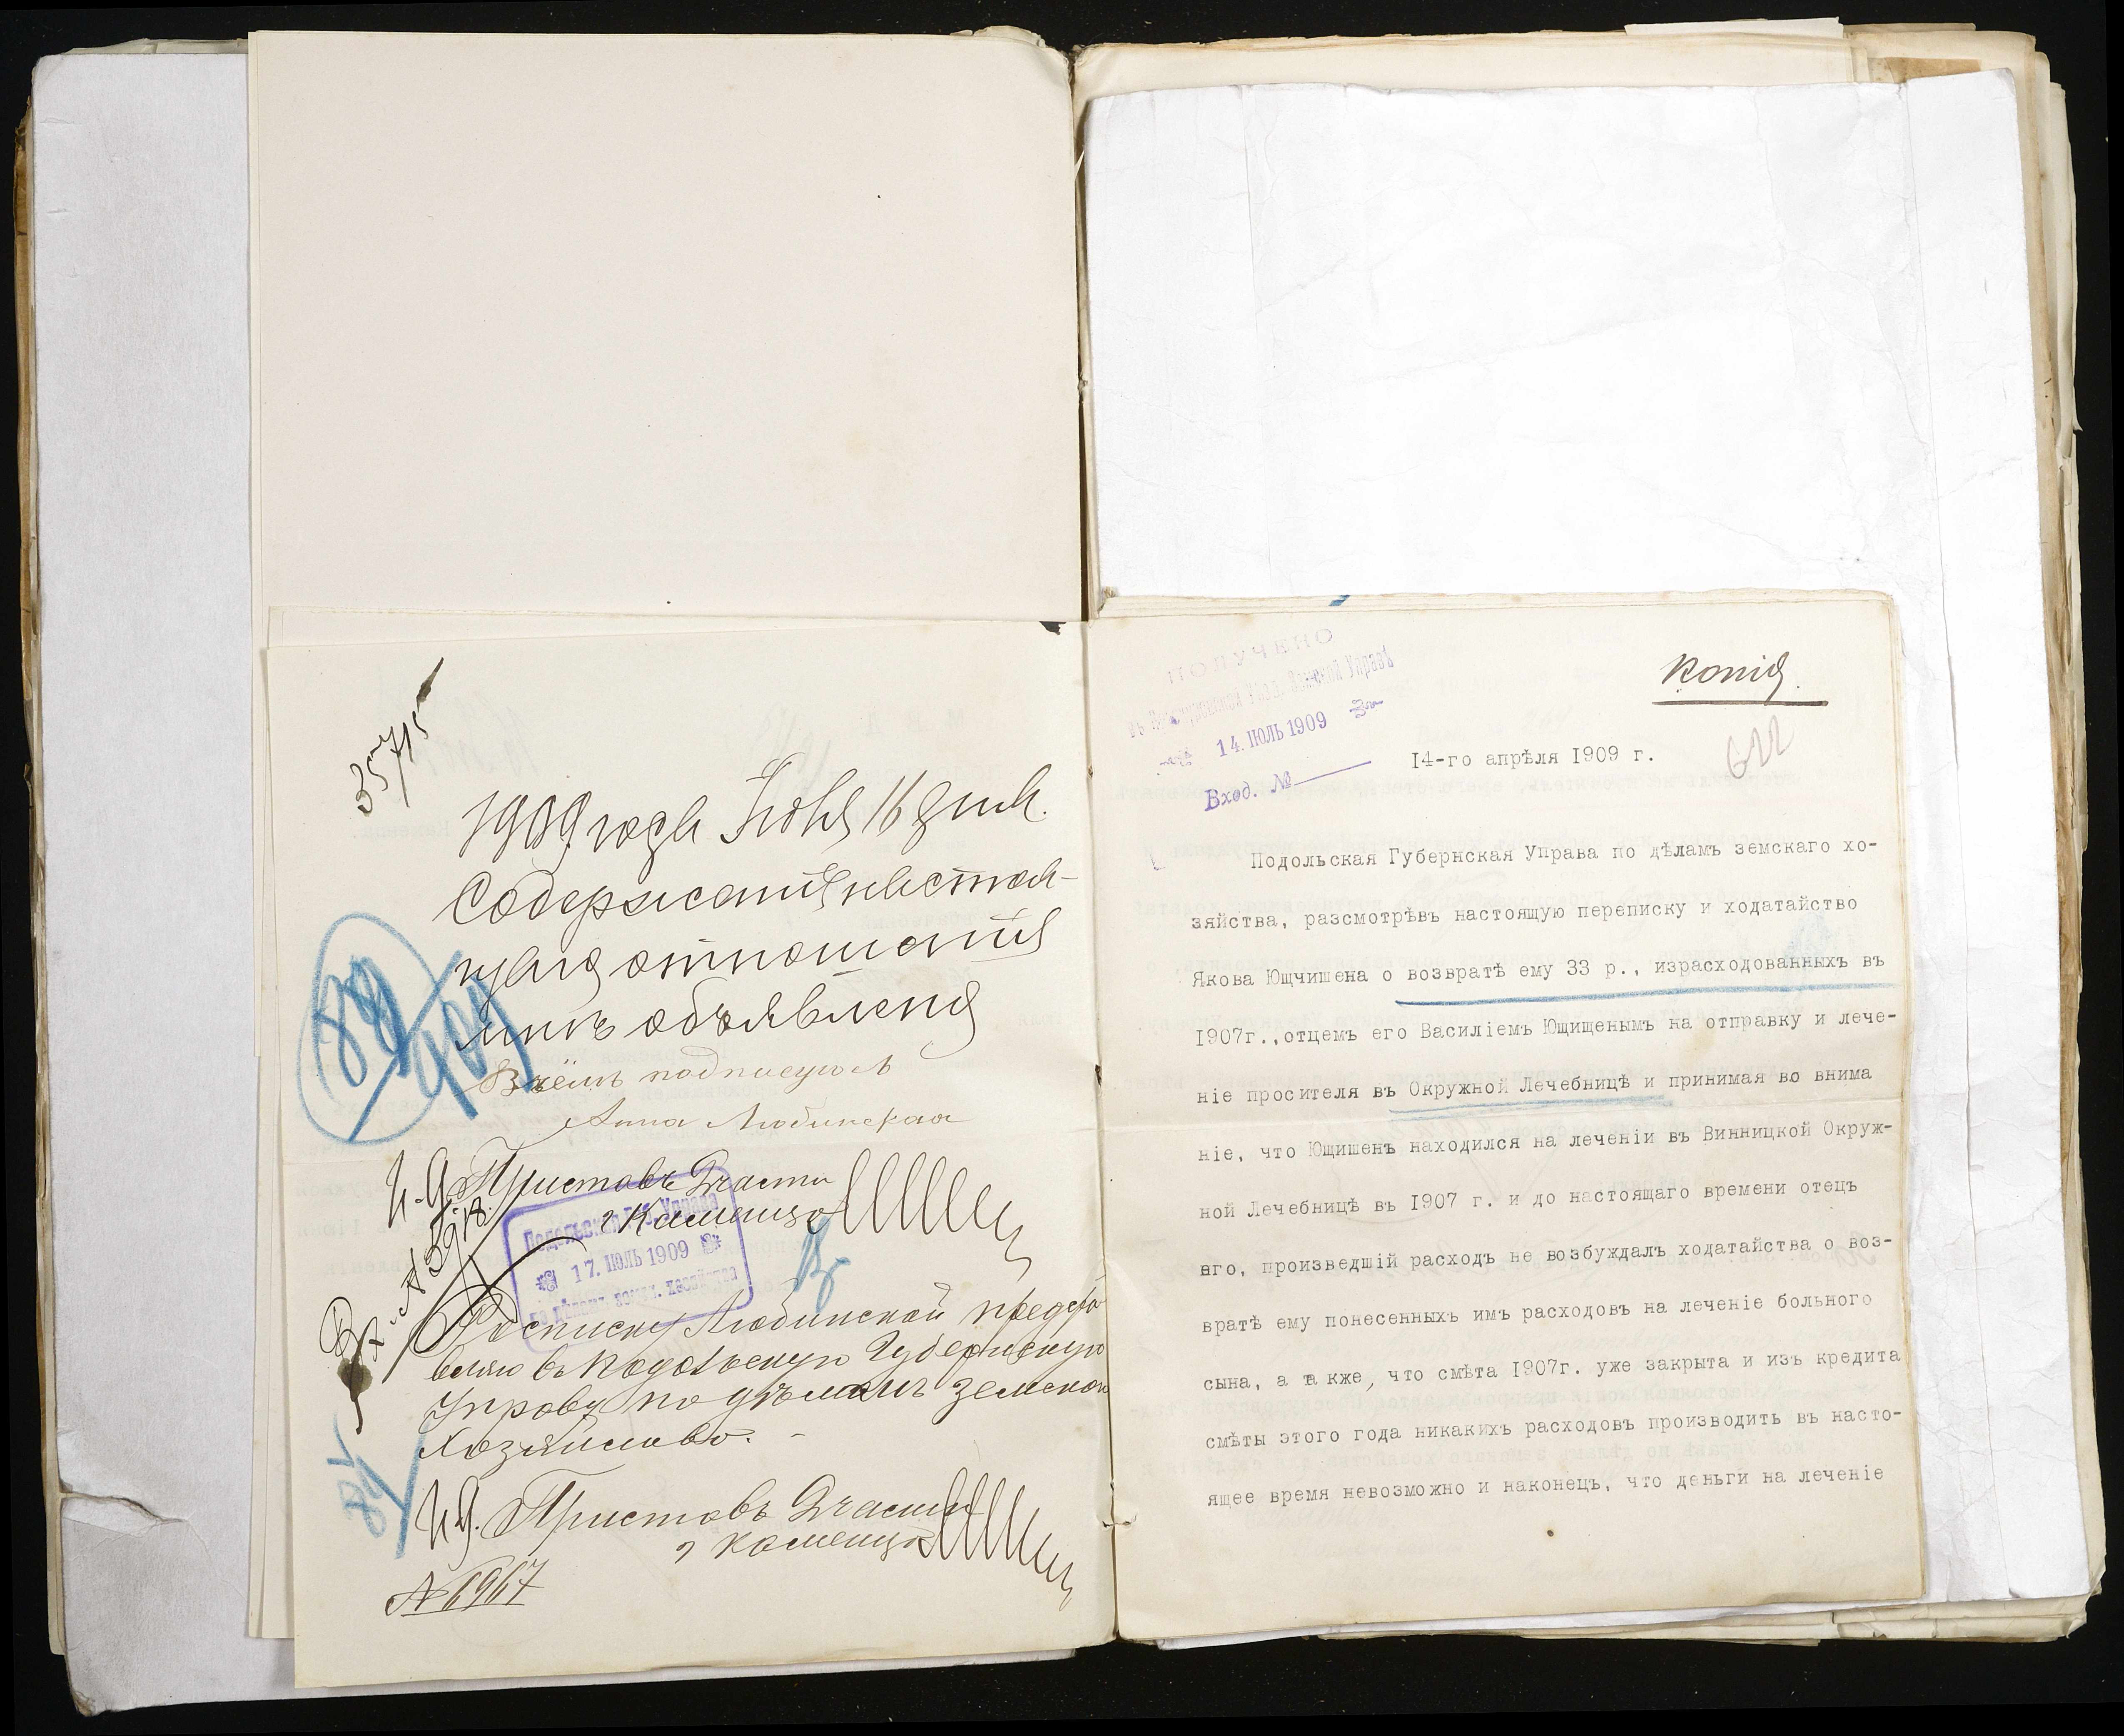 35715
1909 года Июля 16 дня.
Содержание настоя-
щаго отношения
мнѣ объявлено
В чёмъ подписуюсь
Анна Любинская
И. Д. Приставъ 2 части
г Каменца
Подольская Губ. Управа
17. ІЮЛЬ 1909
по дѣламъ земск. хозяйства
Росписку Любинской предста
вляю въ Подольскую Губернскую
Управу по дѣламъ земскаго
Хозяйства. -
И. Д. Приставъ 2 части
г Каменца
№ 6967
88
909
84
ПОЛУЧЕНО
Земской Управѣ
14. ІЮЛЬ 1909
Вход. №
Копія.
622
14-го апрѣля 1909 г.
Подольская Губернская Управа по дѣламъ земскаго хо-
зяйства, разсмотрѣвъ настоящую переписку и ходатайство
Якова Ющчишена о возвратѣ ему 33 р., израсходованныхъ въ
1907г.,отцемъ его Василіемъ Ющищенымъ на отправку и лече-
ніе просителя въ Окружной Лечебницѣ и принимая во внима
ніе, что Ющишенъ находился на леченіи въ Винницкой Окруж-
ной Лечебницѣ въ 1907 г. и до настоящаго времени отецъ
его, произведшій расходъ не возбуждалъ ходатайства о воз-
вратѣ ему понесенныхъ имъ расходовъ на леченіе больного
сына, а также, что смѣта 1907г. уже закрыта и изъ кредита
смѣты этого года никакихъ расходовъ производить въ насто-
ящее время невозможно и наконецъ, что деньги на леченіе